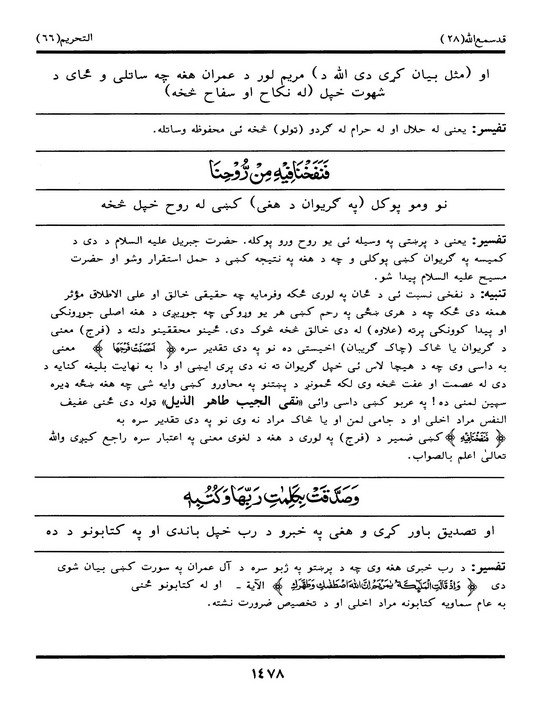 قدسمع الله(٢٨)
التحریم(٦٦)
او (مثل بیان کړی دی الله د) مریم لور د عمران هغه چه ساتلی و ځای د
شهوت خپل (له نکاح او سفاح څخه)
تفسیر: یعنی له حلال او له حرام له گردو (تولو) څخه ئی محفوظه وساتله.
فَنَفَخْنَا فِيْهِ مِنْ رُّوْحِنَا
نو ومو پوکل (په گریوان د هغی) کښی له روح خپل څخه
تفسیر: یعنی د پرښتی په وسیله ئی یو روح ورو پوکله. حضرت جبریل علیه السلام د دی د
کمیسه په گریوان کښی پوکلی و چه د هغه په نتیجه کښی د حمل استقرار وشو او حضرت
مسیح علیه السلام پیدا شو.
تنبیه: د نفخی نسبت ئی د ځان په لوری ځکه وفرمایه چه حقیقی خالق او علی الاطلاق مؤثر
همغه دی ځکه چه د هری ښځی په رحم کښی هر یو ووړکی چه جوړیږی د هغه اصلی جوړونکی
او پیدا کوونکی پرته (علاوه) له دی خالق څخه څوک دی. ځینو محققینو دلته د (فرج) معنی
د گریوان یا څاک (چاک گریبان) اخیستی ده نو په دی تقدیر سره ﴿ اَحْصَنَتْ فَرْجَهَا ﴾ معنی
به داسی وی چه د هیچا لاس ئی خپل گریوان ته نه دی پری ایښی او دا به نهایت بلیغه کنایه د
دی له عصمت او عفت څخه وی لکه ځمونږ د پښتنو په محاورو کښی وایه شی چه هغه ښځه ډیره
سپین لمنی ده! په عربو کښی داسی وائی «نقی الجیب طاهر الذیل» توله دی ځنی عفیف
النفس مراد اخلی او د جامی لمن او یا څاک مراد نه وی نو په دی تقدیر سره به
﴿ فَنَفَخْنَا فِيْهِ ﴾ کښی ضمیر د (فرج) په لوری د هغه د لغوی معنی په اعتبار سره راجع کیږی والله
تعالیٰ اعلم بالصواب.
وَصَدَّقَتْ بِكَلِمٰتِ رَبِّهَا وَكُتُبِهٖ
او تصدیق باور کړی و هغی په خبرو د رب خپل باندی او په کتابونو د ده
تفسیر: د رب خبری هغه وی چه د پرښتو په ژبو سره د آل عمران په سورت کښی بیان شوی
دی ﴿ وَاِذْ قَالَتِ الْمَلٰٓئِكَةُ يٰمَرْيَمُ اِنَّ اللّٰهَ اصْطَفٰىكِ وَطَهَّرَكِ ﴾ الآیة - او له کتابونو ځنی
به عام سماویه کتابونه مراد اخلی او د تخصیص ضرورت نشته.
١٤٧٨